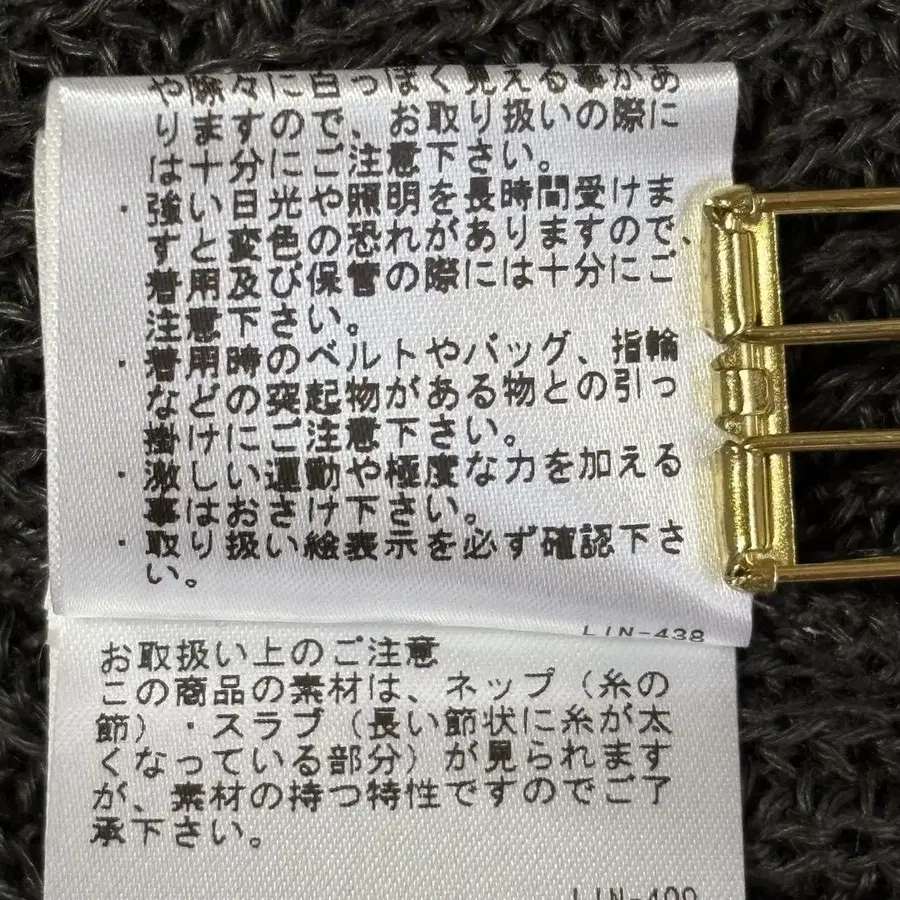 や除々に白っぽく見える事があ
ります ので、お取り扱いの際に
は十分にご注意下さい。
・強い日光や照明を長時間受けま
すと変色の恐れがありますので、
着用及び保管の際には十分にご
注意下さい。
・着用時のベルトやバッグ、指輪
などの突起物がある物との引っ
掛けにご注意下さい。
・激しい運動や極度な力を加える
事はおさけ下さい。
・取り扱い絵表示を必ず確認下さ
い。
LIN-438
お取扱い上のご注意
この商品の素材は、ネップ（糸の
節）・スラブ（長い節状に糸が太
くなっている部分）が見られます
が、素材の持つ特性ですのでご了
承下さい。
LIN-409